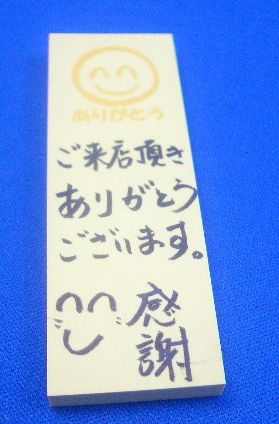 ありがとう
ご来店頂き
ありがとう
ございます。
感謝